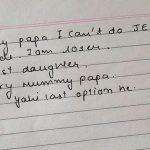 papa I can't do JE
I am loser.
st daughter.
ry mummy papa.
yahi last option he.